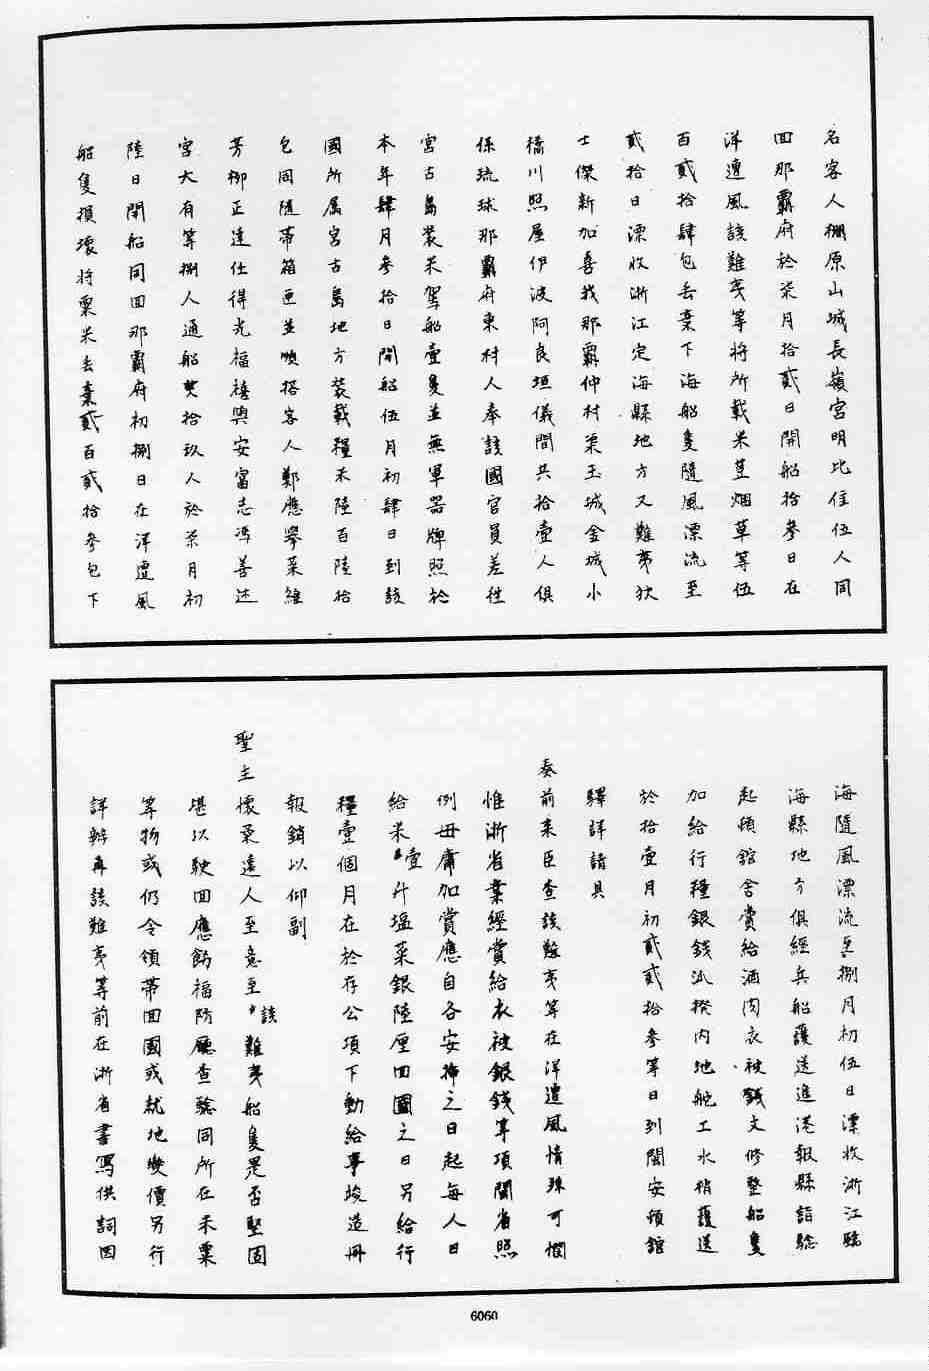 名客人棚原山城長嶺宮明比住伍人同
回那霸府於柒月拾貳日開船拾參日在
洋遭風該難夷等將所載米荳烟草等伍
百貳拾肆包丟棄下海船隻隨風漂流至
貳拾日漂收浙江定海縣地方又難夷狄
士傑新加喜我那霸仲村栗玉城金城小
橋川照屋伊波阿良垣儀間共拾壹人俱
係琉球那霸府東村人奉該國官員差往
宮古島裝米駕船壹隻並無軍器牌照於
本年肆月參拾日開船伍月初肆日到該
國所属宮古島地方裝載糧米陸百陸拾
包同隨帶箱匣並順搭客人鄭應擧菜維
芳柳正逢仕得光福禧興安富志馮善述
宮大有等捌人通船貳拾玖人於柒月初
陸日開船同回那霸府初捌日在洋遭風
船隻損壞將粟米丟棄貳百貳拾參包下
海隨風漂流至捌月初伍日漂收浙江臨
海縣地方俱經兵船護送進港報縣詣驗
起頓舘舍賞給酒肉衣被錢文修整船隻
加給行糧銀錢派撥内地舵工水稍護送
於拾壹月初貳貳拾參等日到閩安頓舘
驛詳請具
奏前来臣查該難夷等在洋遭風情殊可憫
惟浙省業經賞給衣被銀錢等項閩省照
例毋庸加賞應自各安揷之日起每人日
給米壹升塩菜銀陸厘回國之日另給行
糧壹個月在於存公項下動給事竣造冊
報銷以仰副
聖主懷柔遠人至意至該難夷船隻是否堅固
堪以駛回應飭福防廳查驗同所在米粟
等物或仍令領帶回國或就地變價另行
詳辦再該難夷等前在浙省書寫供詞因
6060